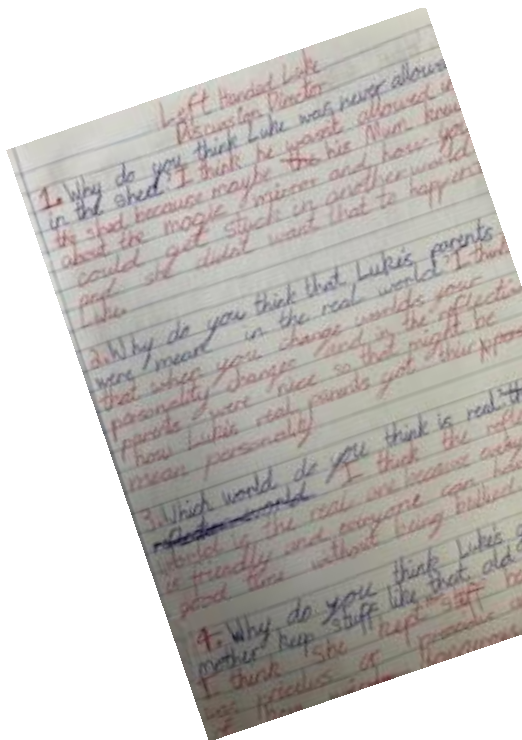 Left Handed Luke
Discussion Director
1. Why do you think Luke was never allowed
in the shed. I think he wasnt allowed in
the shed because maybe his Mum knew
about the magic mirror and how you
could get stuck in another world
and she didnt want that to happen
Luke
2. Why do you think that Luke's parents
were mean in the real world. I think
that when you change worlds your
personality changes and in the reflection
parents were nice so that might be
how Luke's real parents got their
mean personality
3. Which world do you think is real
I think the
world is the real one because
is friendly and everyone can have
good time without being bullied
4. Why do you think Luke's
mother keep stuff like that old
I think she kept stuff
was precious or
of